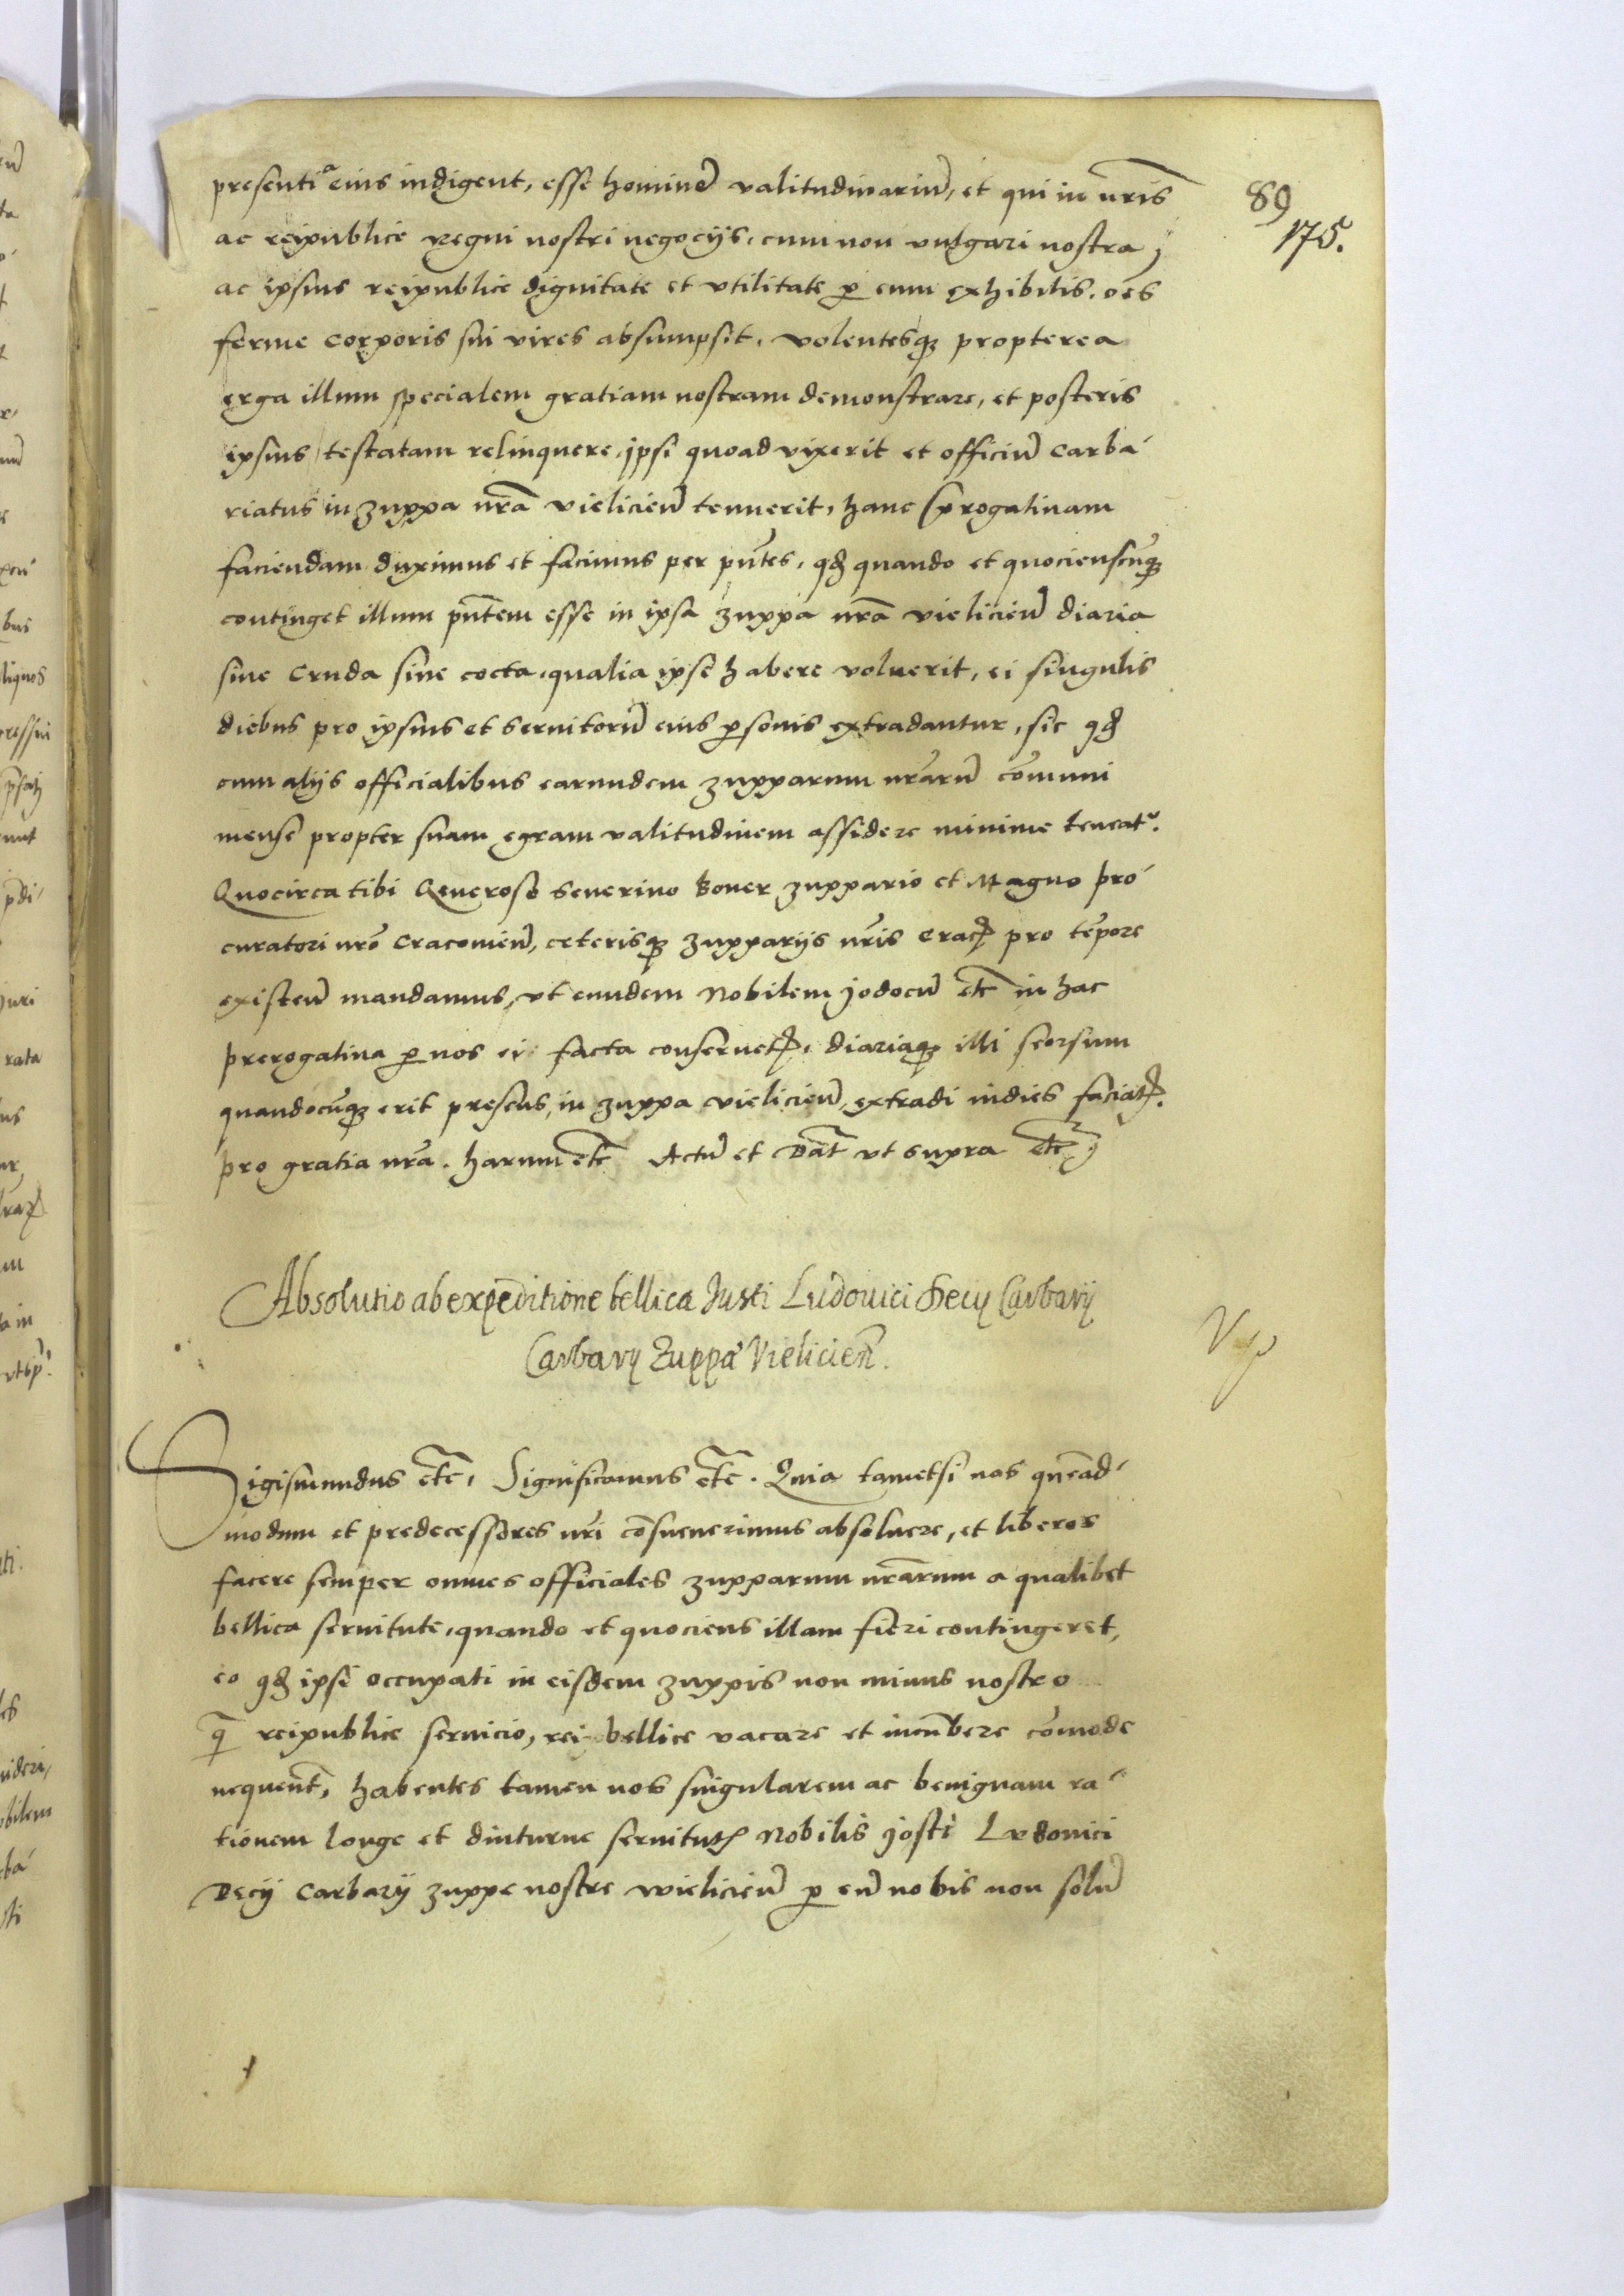 presentia eius indigent, esse hominē valitudinariū, et qui in nr̄is
ac reipublice regni nostri negocijs, cum non vulgari nostra,
ac ipsius reipublice dignitate et vtilitate ꝑ eum exhibitis, oēs
ferme corporis sui vires absumpsit, volentesqꝫ propterea
erga illum specialem gratiam nostram demonstrare, et posteris
ipsius testatam relinquere, ipsi quoad vixerit et officiū carba-
riatus in zuppa nr̄a vielicień tenuerit, hanc prerogatiuam
faciendam duximus et facimus per pn̄tes, qđ quando et quocienscūqꝫ
continget illum pn̄tem esse in ipsa zuppa nr̄a vielicień diaria
siue cruda siue cocta, qualia ipse habere voluerit, ei singulis
diebus pro ipsius et seruitorū eius ꝑsonis extradantur, sic qđ
cum alijs officialibus earundem zupparum nr̄arū cōmuni
mense propter suam egram valitudinem assidere minime teneatʳ.
Quocirca tibi Generose Seuerino Boner zuppario et Magno pro-
curatori nr̄o Cracouień, ceterisqꝫ zupparijs nr̄is Cracꝭ pro tēpore
existeń mandamus, vt eundem Nobilem Jodocū etc̄ in hac
prerogatiua ꝑ nos ei facta conseruetꝭ, diariaqꝫ illi seorsum
quandocūqꝫ erit presens, in zuppa vielicień, extradi indies faciatꝭ.
pro gratia nr̄a. harum etc̄ Actū et Dat̄ vt supra etc̄
89
175.
Absolutio ab expeditione bellica Justi Ludouici Decij Carbarij
Carbarij Zuppę Vielicień.
Sigismundus etc̄, Significamus etc̄. Quia tametsi nos quēad-
modum et predecessores nr̄i cōsueuerimus absoluere, et liberos
facere semper omnes officiales zupparum nr̄arum a qualibet
bellica seruitute, quando et quociens illam fieri contingeret,
eo qđ ipsi occupati in eisdem zuppis non minus nostro
q̄ reipublice seruicio, rei bellice vacare et incūbere cōmode
nequeūt, habentes tamen nos singularem ac benignam ra-
tionem longe et diuturne seruitutꝭ Nobilis Josti Ludouici
Decij Carbarij zuppe nostre wielicień ꝑ eū nobis non solū